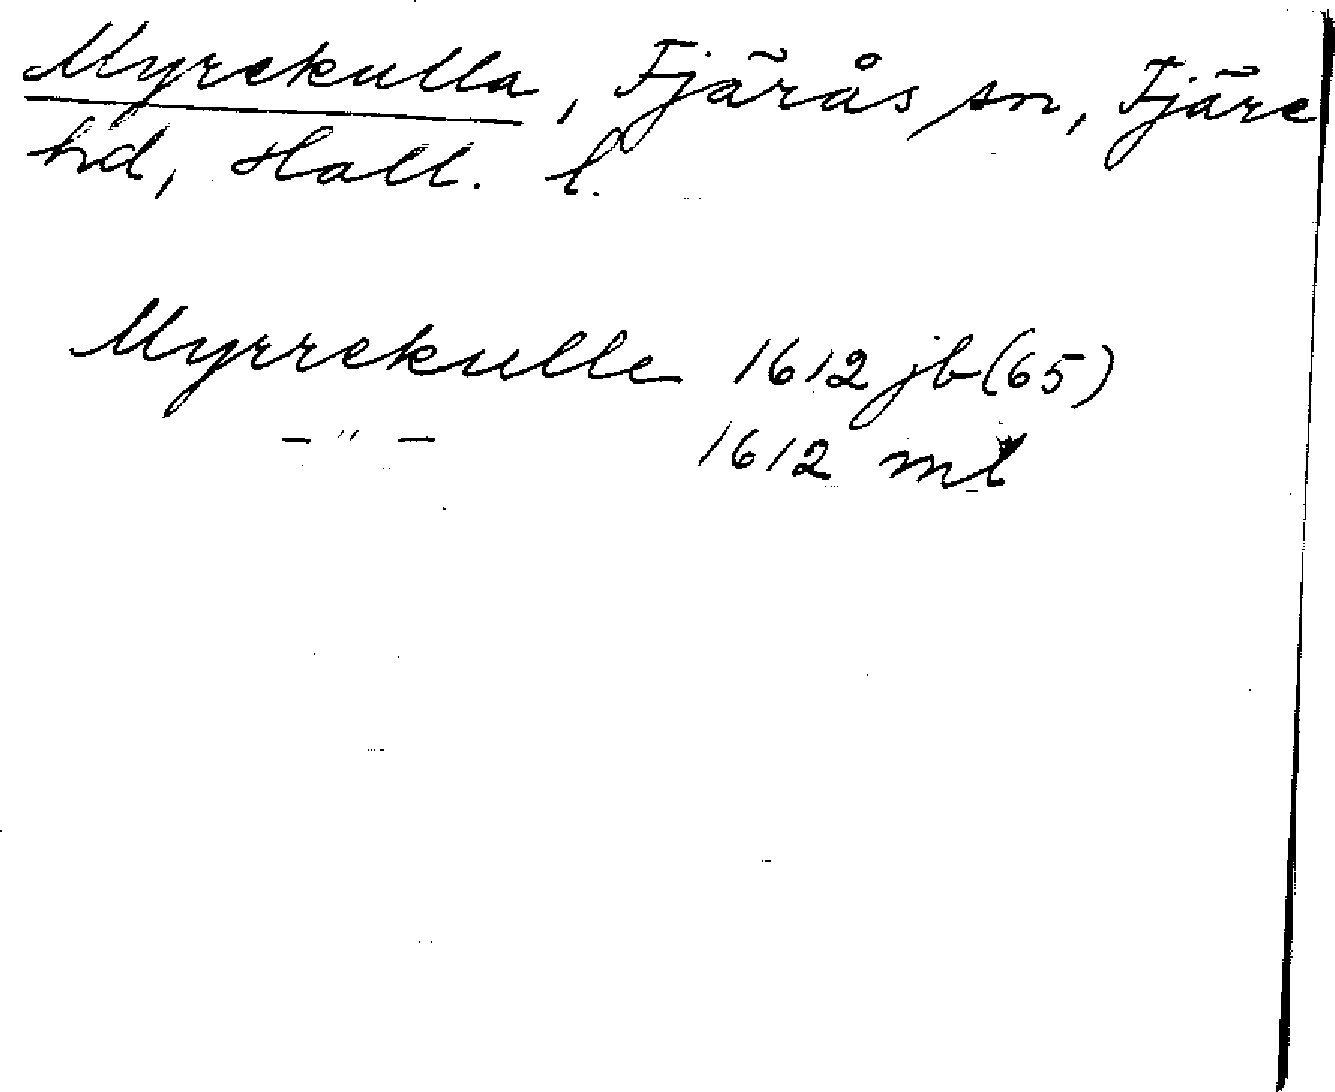 Myrekulla, Fjärås sn, Fjäre
hd, Hall. l.
Myrrekulle 1612 jb (65)
— " — 1612 ml